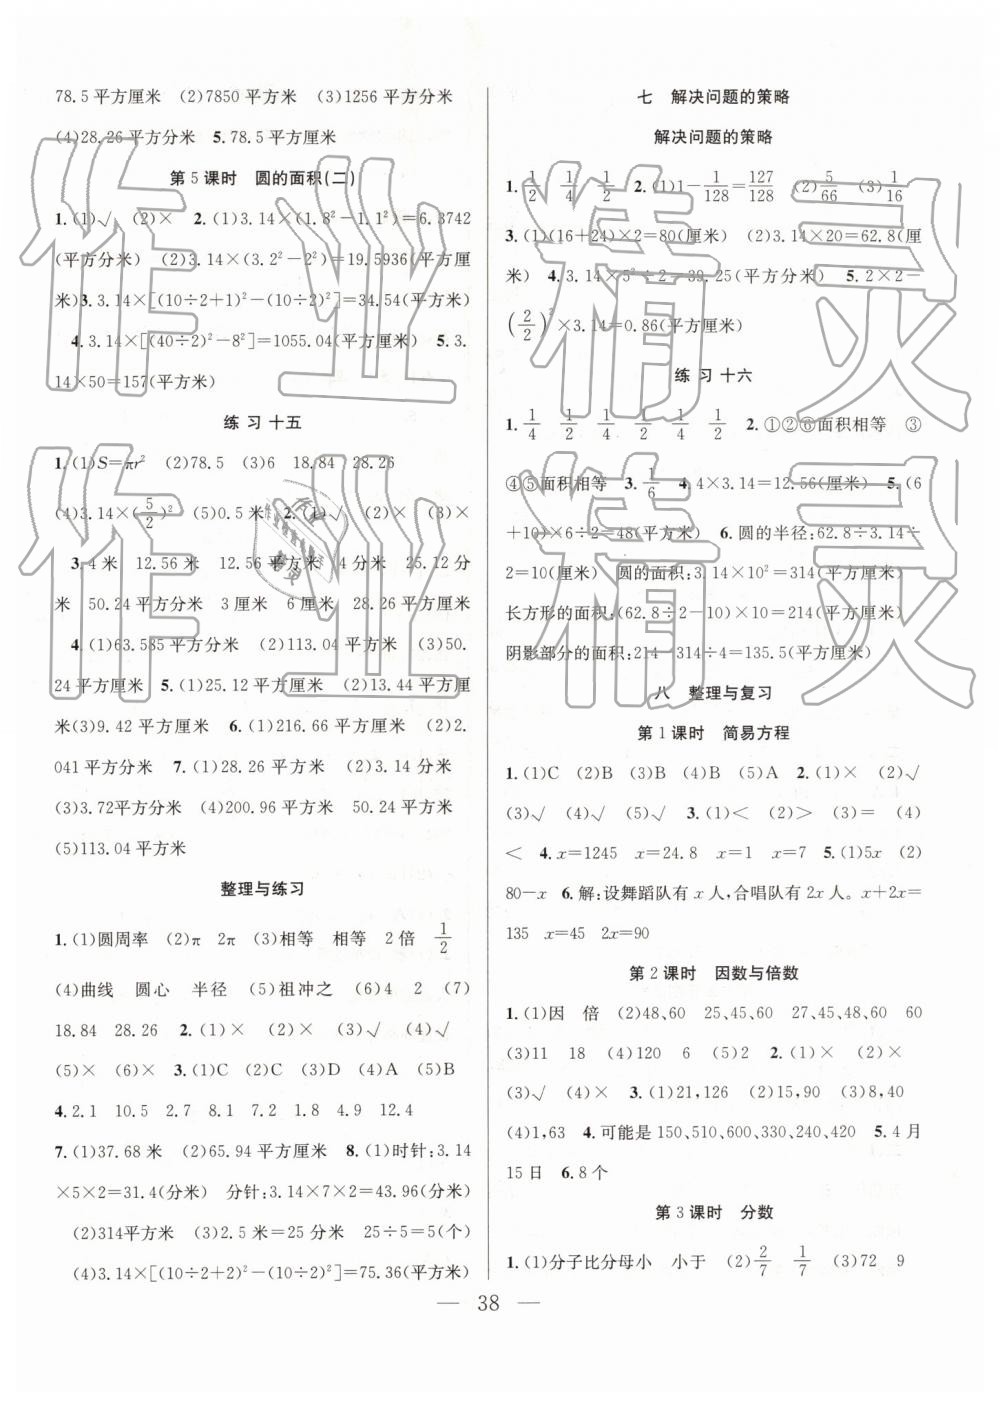 78.5平方厘米　(2)7850平方米　(3)1256平方厘米
(4)28.26平方分米　5.78.5平方厘米
第5课时　圆的面积(二)
1.(1)√　(2)×　2.(1)3.14×(1.8²－1.1²)＝6.3742
(平方分米)　(2)3.14×(3.2²－2²)＝19.5936(平方厘
米)3.3.14×[(10÷2+1)²－(10÷2)²]＝34.54(平方米)
4.3.14×[(40÷2)²－8²]＝1055.04(平方厘米)　5.3.
14×50＝157(平方米)
练习十五
1.(1)S＝πr²　(2)78.5　(3)6　18.84　28.26
(4)3.14×(5/2)²　(5)0.5米　2.(1)√　(2)×　(3)×
3.4米　12.56米　12.56平方米　4分米　25.12分
米　50.24平方分米　3厘米　6厘米　28.26平方厘米
4.(1)63.585平方分米　(2)113.04平方米　(3)50.
24平方厘米　5.(1)25.12平方厘米　(2)13.44平方厘
米(3)9.42平方厘米　6.(1)216.66平方厘米　(2)2.
041平方分米　7.(1)28.26平方米　(2)3.14分米
(3)3.72平方分米　(4)200.96平方米　50.24平方米
(5)113.04平方米
整理与练习
1.(1)圆周率　(2)π　2π　(3)相等　相等　2倍　1/2
(4)曲线　圆心　半径　(5)祖冲之　(6)4　2　(7)
18.84　28.26　2.(1)×　(2)×　(3)√　(4)√
(5)×　(6)×　3.(1)C　(2)D　(3)C　(4)A　(5)B
4.2.1　10.5　2.7　8.1　7.2　1.8　4.9　12.4
7.(1)37.68米　(2)65.94平方厘米　8.(1)时针:3.14
×5×2＝31.4(分米)　分针:3.14×7×2＝43.96(分米)
(2)314平方米　(3)2.5米＝25分米　25÷5＝5(个)
(4)3.14×[(10÷2+2)²－(10÷2)²]＝75.36(平方米)
七　解决问题的策略
解决问题的策略
1.1/2　1/4　1/2　2.(1)1－1/128＝127/128　(2)5/66　(3)1/16
3.(1)(16+24)×2＝80(厘米)　(2)3.14×20＝62.8(厘
米)　4.3.14×5²÷2＝39.25(平方分米)　5.2×2－
(2/2)²×3.14＝0.86(平方厘米)
练习十六
1.1/4　1/2　1/4　1/4　1/2　2.①②⑥面积相等　③
④⑤面积相等　3.1/6　4.4×3.14＝12.56(厘米)　5.(6
+10)×6÷2＝48(平方米)　6.圆的半径:62.8÷3.14÷
2＝10(厘米)　圆的面积:3.14×10²＝314(平方厘米)
长方形的面积:(62.8÷2－10)×10＝214(平方厘米)
阴影部分的面积:214－314÷4＝135.5(平方厘米)
八　整理与复习
第1课时　简易方程
1.(1)C　(2)B　(3)B　(4)B　(5)A　2.(1)×　(2)√
(3)√　(4)√　(5)√　3.(1)＜　(2)＞　(3)＝　(4)
＜　4.x＝1245　x＝24.8　x＝1　x＝7　5.(1)5x　(2)
80－x　6.解:设舞蹈队有x人,合唱队有2x人。x+2x＝
135　x＝45　2x＝90
第2课时　因数与倍数
1.(1)因　倍　(2)48、60　25、45、60　27、45、48、60　60
(3)11　18　(4)120　6　(5)2　2.(1)×　(2)×
(3)√　(4)×　3.(1)21,126　(2)15,90　(3)8,40
(4)1,63　4.可能是150、510、600、330、240、420　5.4月
15日　6.8个
第3课时　分数
1.(1)分子比分母小　小于　(2)2/7　1/7　(3)72　9
— 38 —
作业精灵
作业精灵